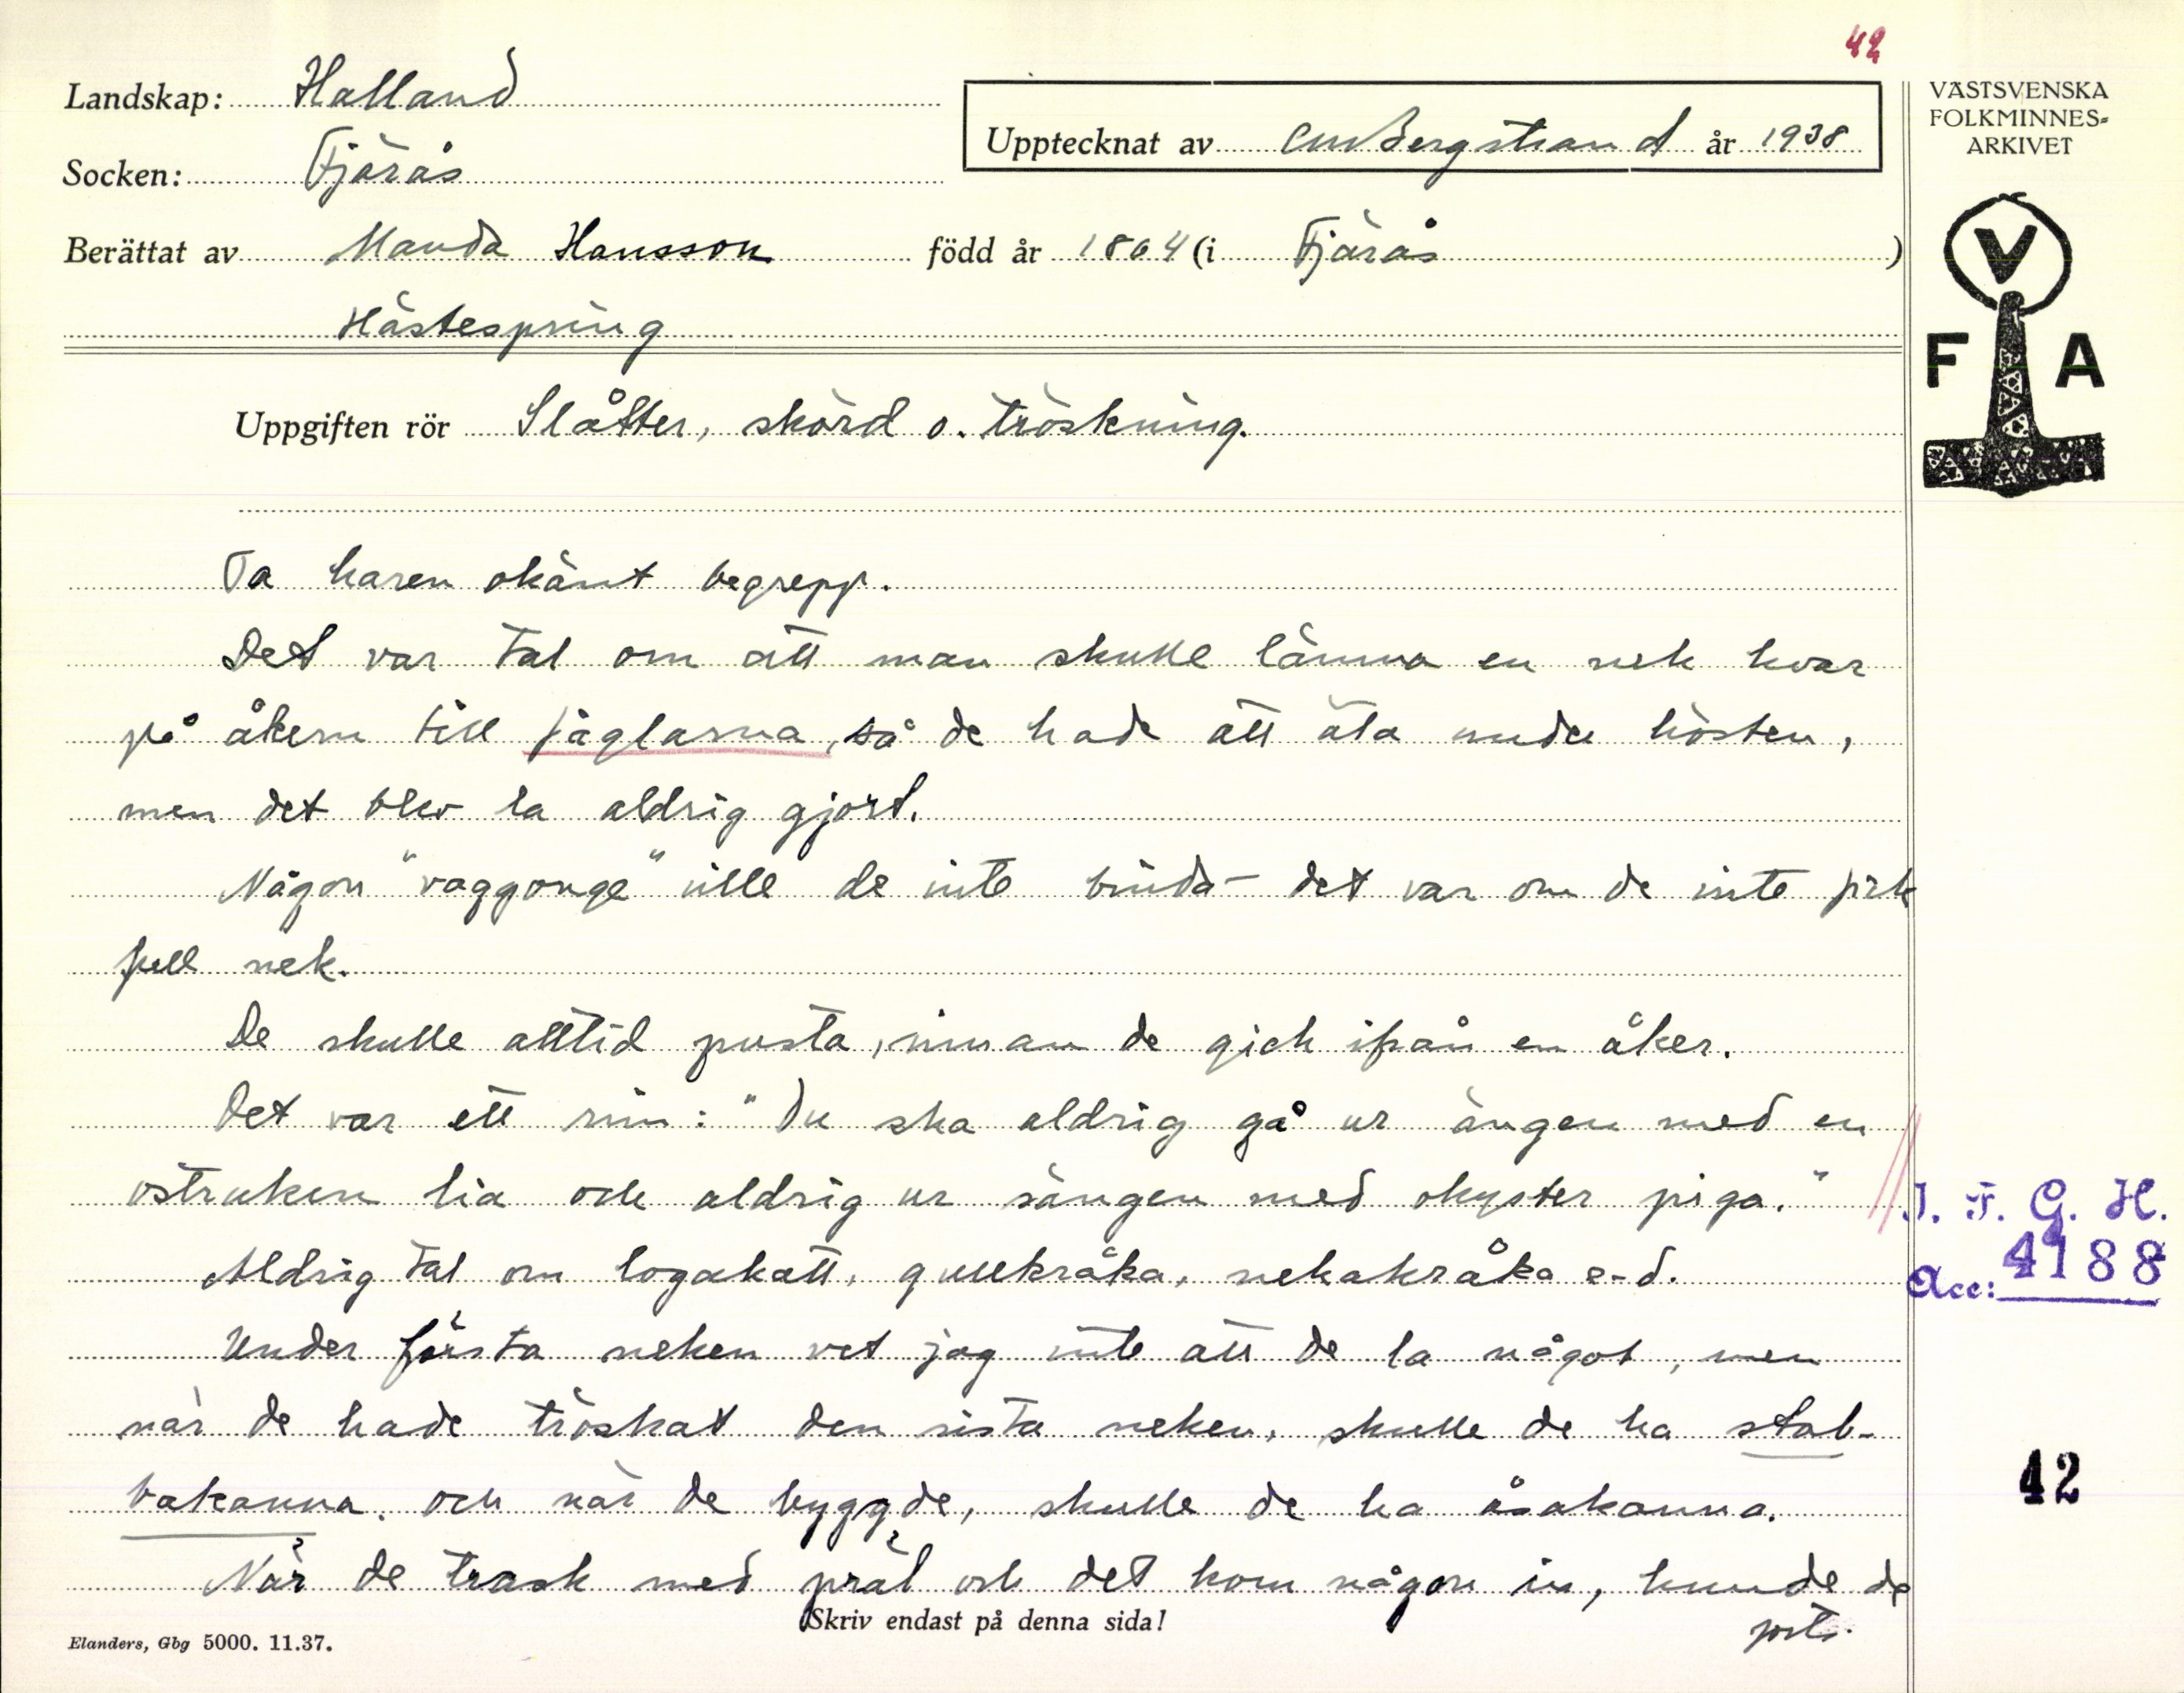 42
Landskap: Halland
Upptecknat av CM Bergstrand år 1938
VÄSTSVENSKA
FOLKMINNES-
ARKIVET
Socken: Fjärås
Berättat av Manda Hansson född år 1864 (i Fjärås )
Hästespring
V
F A
Uppgiften rör Slåtter, skörd o. tröskning.
Ta haren okänt begrepp.
Det var tal om att man skulle lämna en nek kvar
på åkern till fåglarna, så de hade att äta under hösten,
men det blev la aldrig gjort.
Någon "vaggonge" ville de inte binda - det var om de inte fick
full nek.
De skulle alltid pusta, innan de gick ifrån en åker.
Det var ett rim: "Du ska aldrig gå ur ängen med en
ostruken lia och aldrig ur sängen med okyster piga."
Aldrig tal om logakatt, gullkråka, nekakråka e-d.
Under första neken vet jag inte att de la något, men
när de hade tröskat den sista neken, skulle de ha stab-
bakanna, och när de byggde, skulle de ha åsakanna.
När de trask med präl och det kom någon in, kunde de
forts.
Skriv endast på denna sida!
Elanders, Gbg 5000. 11.37.
I. F. G. H.
Acc: 4188
42